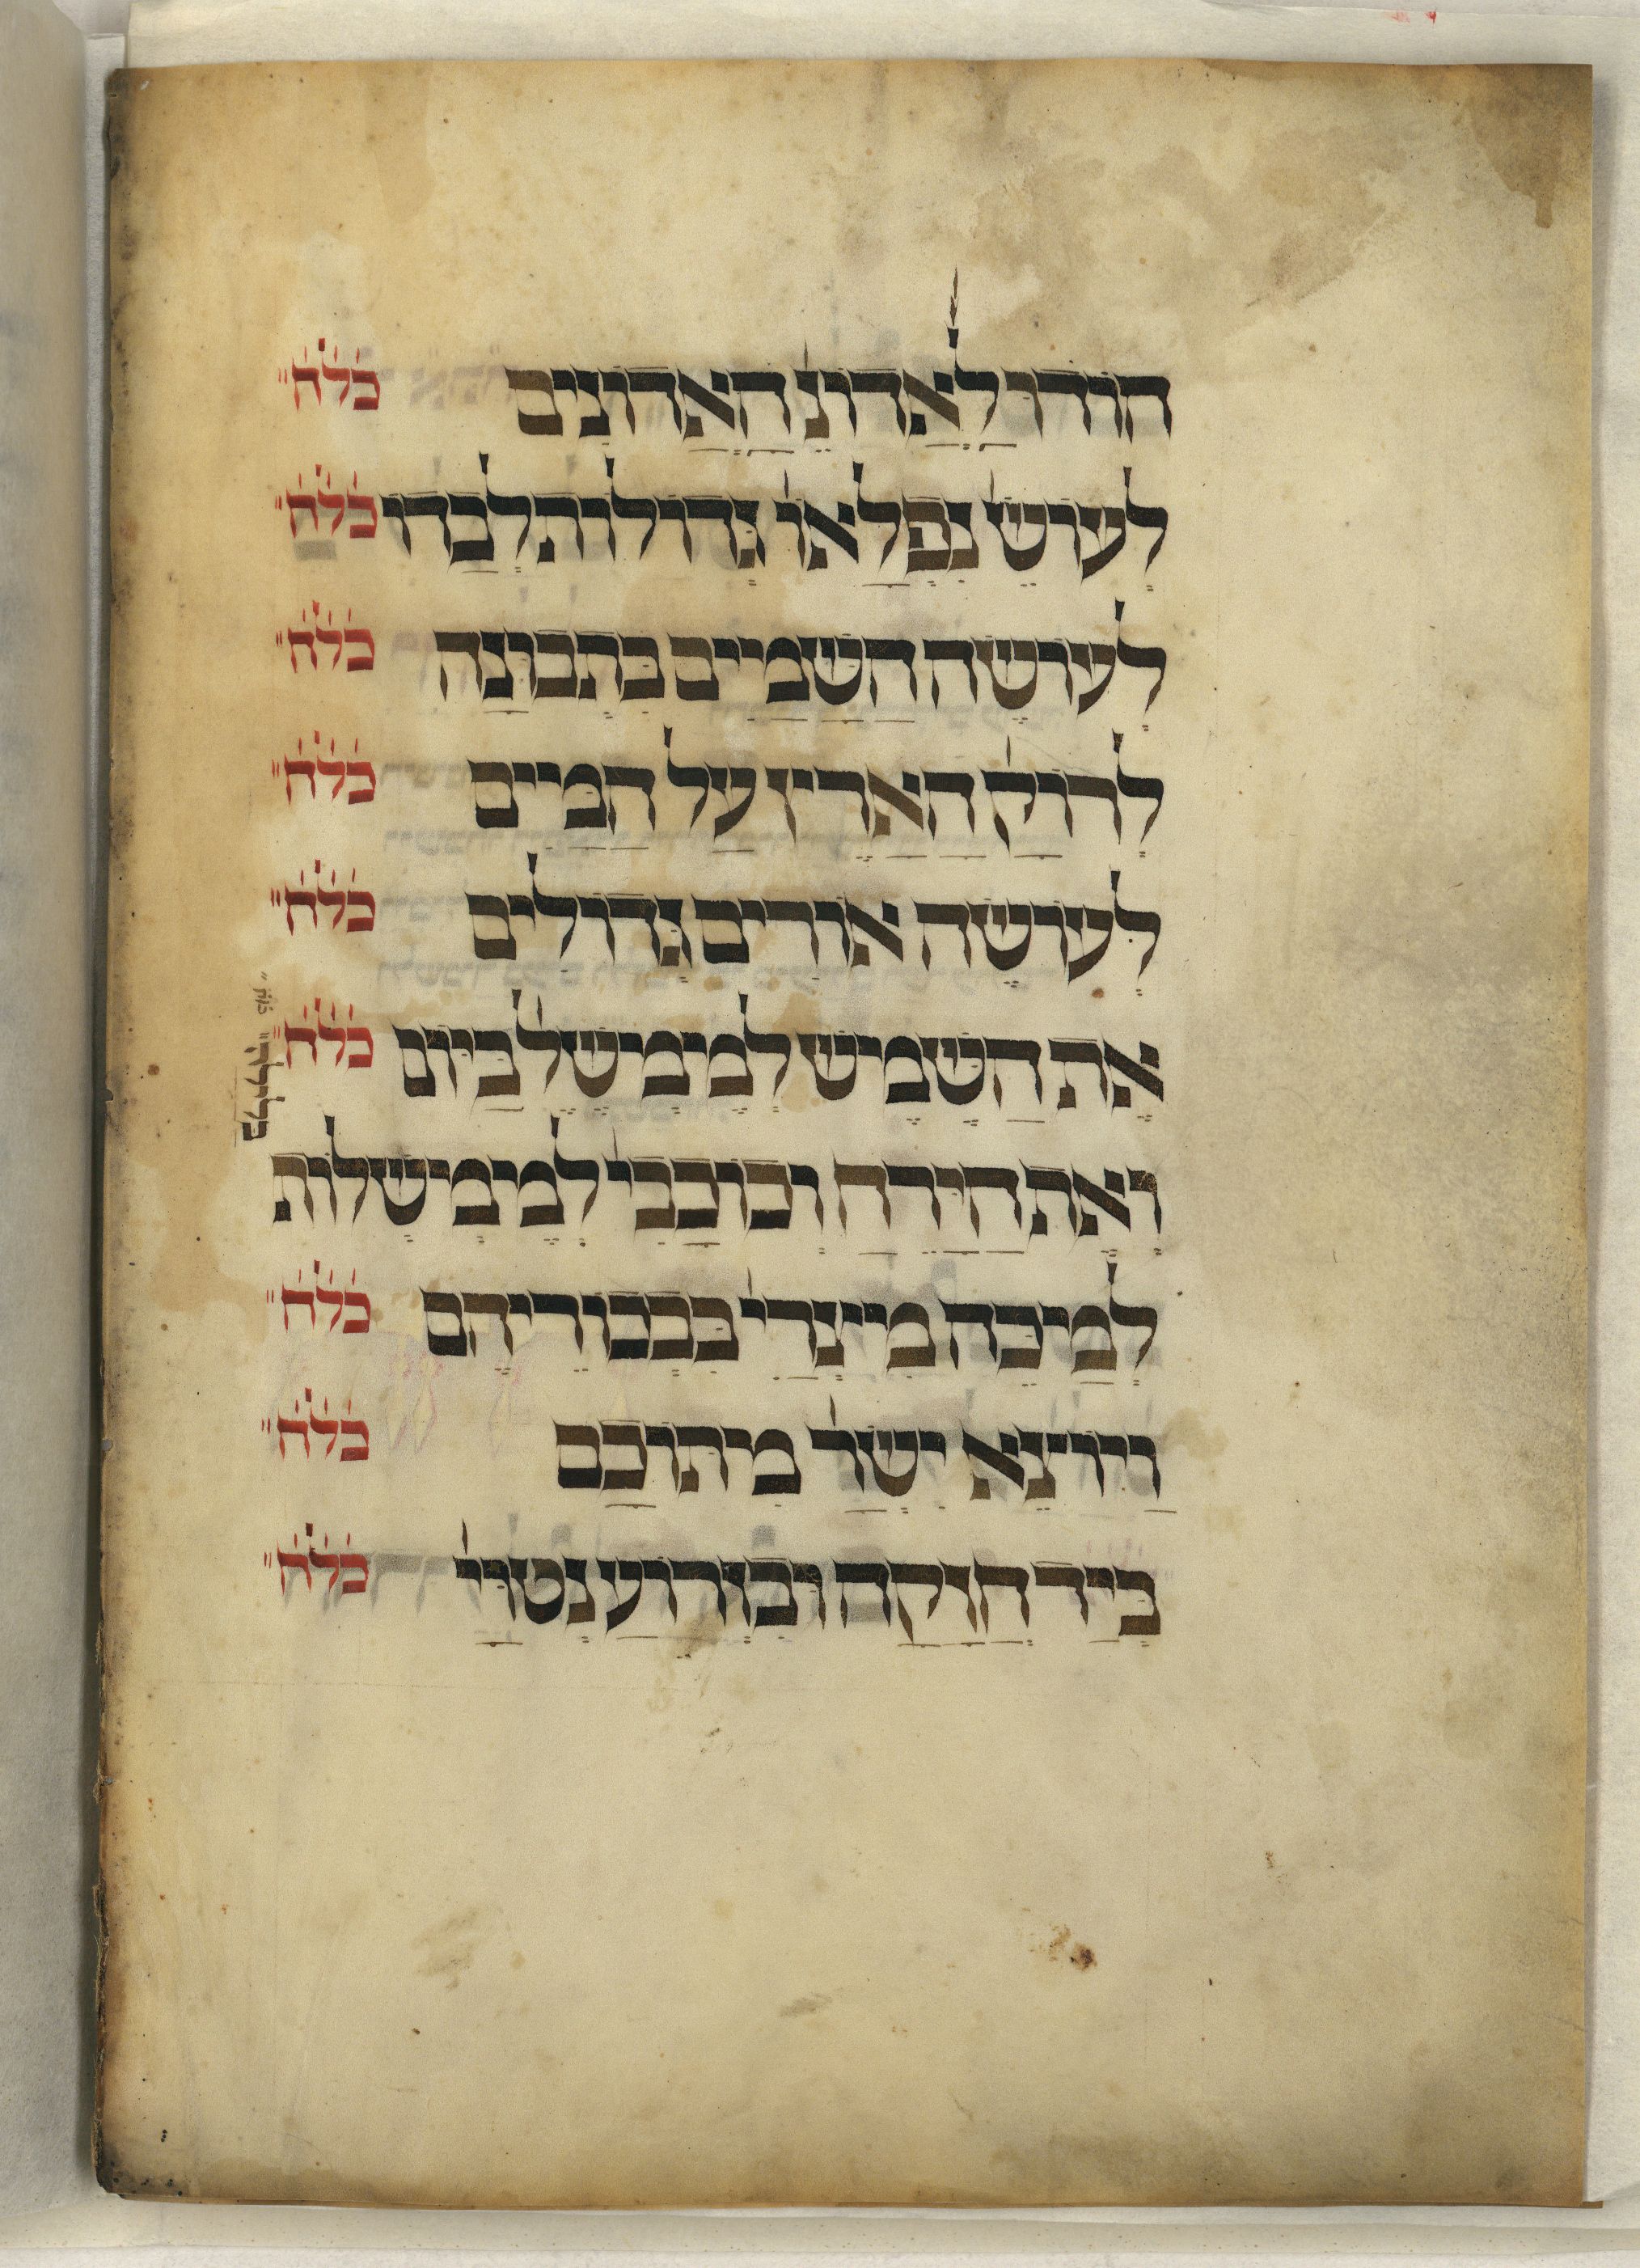 הודו לאדונ׳ האדונים כלח״
לעוש׳ נפלאו׳ גדולות לבדו כלח״
לעושה השמיים בתבונה כלח״
לרוק׳ האריץ על המיים כלח״
לעושה אורים גדולים כלח״
את השמיש למימישל׳ ביום כלח״
ואת הירח וכוכבי׳ למימישלות
בלילה״ כלח״
למיכה מיצרי׳ בבכוריהם כלח״
ויוציא ישר׳ מתוכם כלח״
ביד חזקה ובזרוע נטוי׳ כלח״